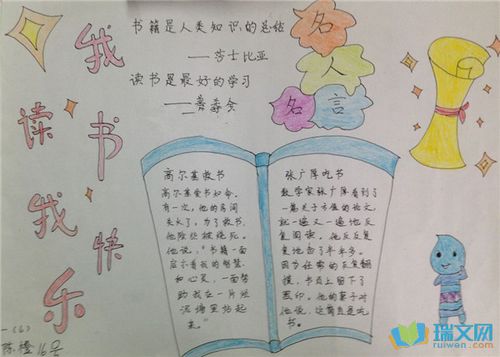 我读书
我快乐
书籍是人类知识的总结
——莎士比亚
读书是最好的学习
——普希金
名
人
名
言
高尔基救书
高尔基爱书如命,
有一次,他的房间
失火了,为了救书,
他险些被烧死。
他说,"书籍一面
启示着我的智慧
和心灵,一面帮
助我在一片烂
泥塘里站起
来。"
张广厚吃书
数学家张广厚看到了
一篇关于方值的论文,
就一遍又一遍地反
复阅读。他反反复
复地念了半年多。
因为经常的反复翻
摸,书页上留下了
黑印。他的妻子对
他说,这简直是吃
书。
一(6)
陈橙 16号
瑞文网
ruiwen.com